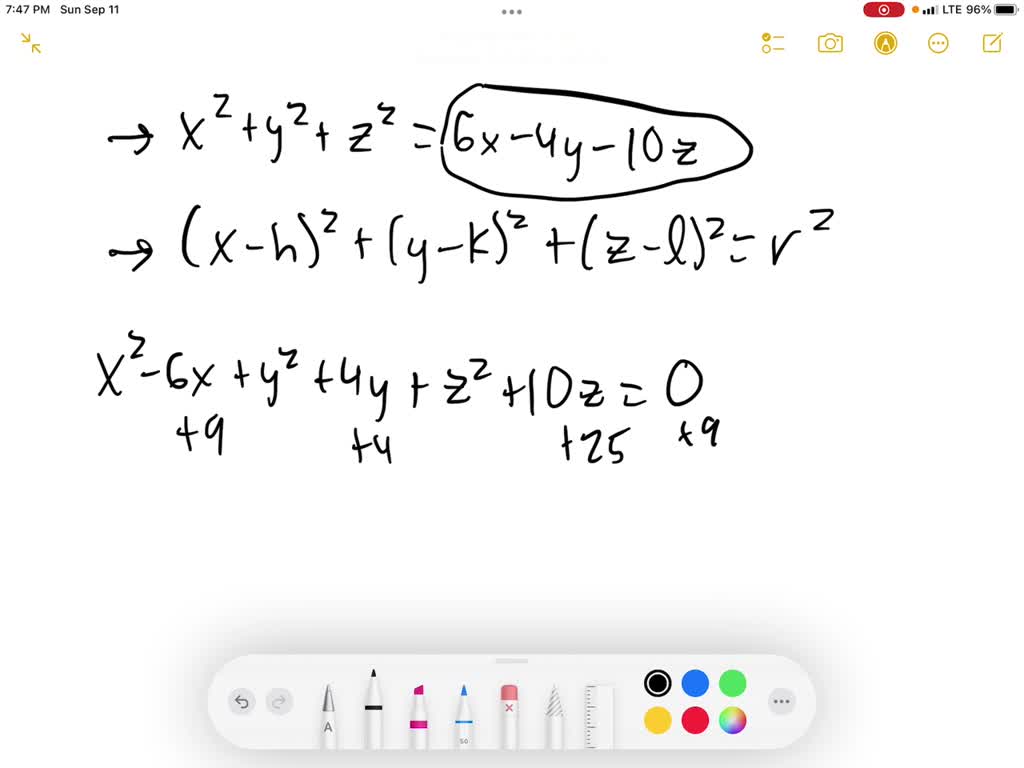 7:47 PM Sun Sep 11 LTE 96%
→ x² + y² + z² = 6x - 4y - 10z
→ (x - h)² + (y - k)² + (z - l)² = r²
x² - 6x + y² + 4y + z² + 10z = 0
+9 +4 +25 +9
A 50